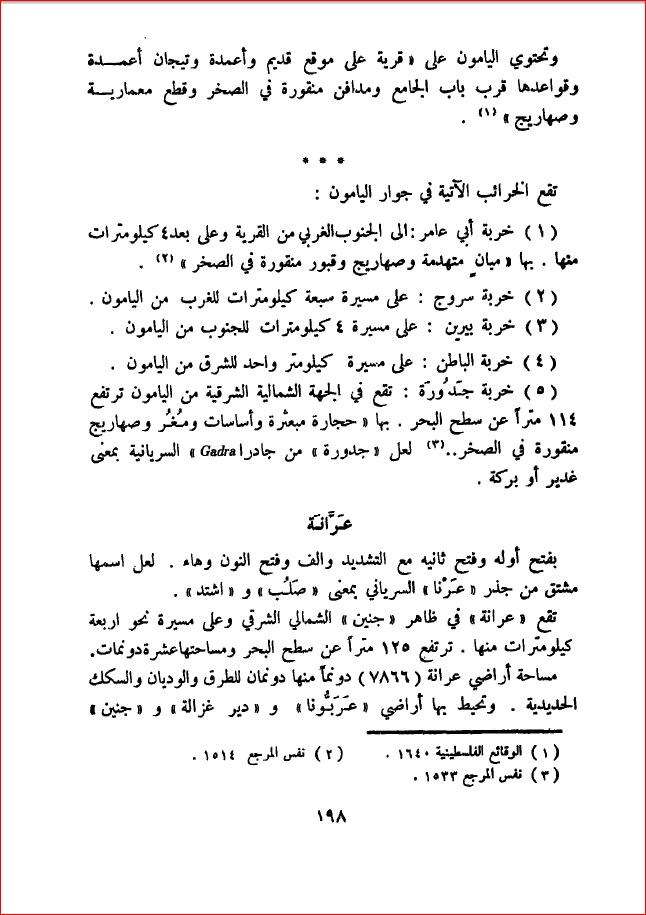 وتحتوي اليامون على « قرية على موقع قديم وأعمدة وتيجان أعمــدة
وقواعدها قرب باب الجامع ومدافن منقورة في الصخر وقطع معماريــة
وصهاريج » (١) .
* * *
تقع الخرائب الآتية في جوار اليامون :
( ١ ) خربة أبي عامر : الى الجنوب الغربي من القرية وعلى بعد ٤ كيلومترات
منها . بها « مبانٍ متهدمة وصهاريج وقبور منقورة في الصخر » (٢) .
( ٢ ) خربة سروج : على مسيرة سبعة كيلومترات للغرب من اليامون .
( ٣ ) خربة بيرين : على مسيرة ٤ كيلومترات للجنوب من اليامون .
( ٤ ) خربة الباطن : على مسيرة كيلومتر واحد للشرق من اليامون .
( ٥ ) خربة جَدُورَة : تقع في الجهة الشمالية الشرقية من اليامون ترتفع
١١٤ متراً عن سطح البحر . بها « حجارة مبعثرة وأساسات ومُغُر وصهاريج
منقورة في الصخر..(٣) لعل « جدورة » من جادرا Gadra » السريانية بمعنى
غدير أو بركة .
عَرَّانَة
بفتح أوله وفتح ثانيه مع التشديد والف وفتح النون وهاء . لعل اسمها
مشتق من جذر « عَرْنا » السرياني بمعنى « صَلُب » و « اشتد » .
تقع « عرانة » في ظاهر « جنين » الشمالي الشرقي وعلى مسيرة نحو اربعة
كيلومترات منها . ترتفع ١٢٥ متراً عن سطح البحر ومساحتها عشرة دونمات.
مساحة أراضي عرانة ( ٧٨٦٦ ) دونماً منها دونمان للطرق والوديان والسكك
الحديدية . وتحيط بها أراضي « عَرَبُّونا » و « دير غزالة » و « جنين »
( ١ ) الوقائع الفلسطينية ١٦٤٠ . ( ٢ ) نفس المرجع ١٥١٤ .
( ٣ ) نفس المرجع ١٥٣٣ .
١٩٨